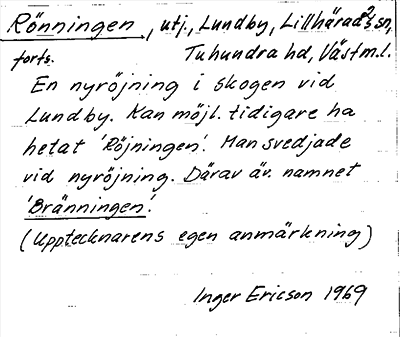 Rönningen, utj., Lundby, Lillhärads sn,
forts. Tuhundra hd, Västm.l.
En nyröjning i skogen vid
Lundby. Kan möjl. tidigare ha
hetat 'Röjningen'. Man svedjade
vid nyröjning. Därav äv. namnet
'Bränningen'.
(Upptecknarens egen anmärkning)
Inger Ericson 1969